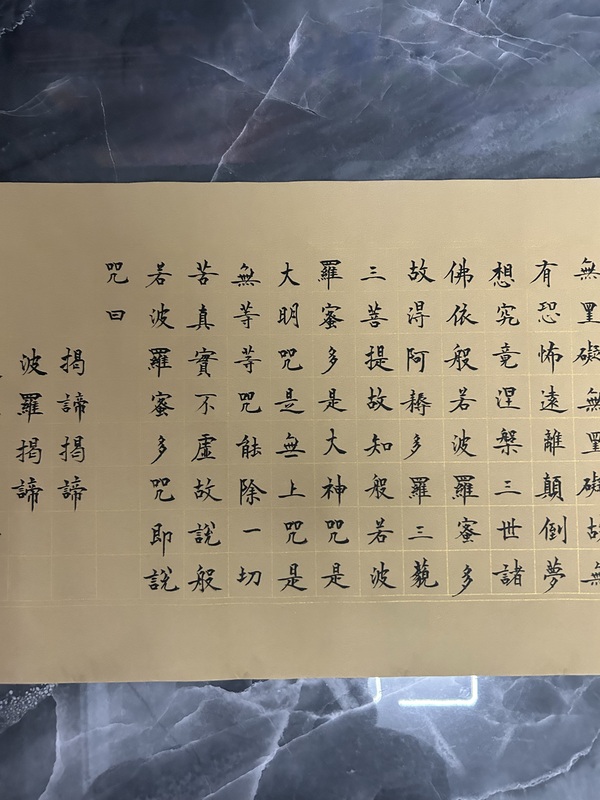 無罣礙無罣礙故無
有恐怖遠離顛倒夢
想究竟涅槃三世諸
佛依般若波羅蜜多
故得阿耨多羅三藐
三菩提故知般若波
羅蜜多是大神咒是
大明咒是無上咒是
無等等咒能除一切
苦真實不虛故說般
若波羅蜜多咒即說
咒曰
揭諦揭諦
波羅揭諦